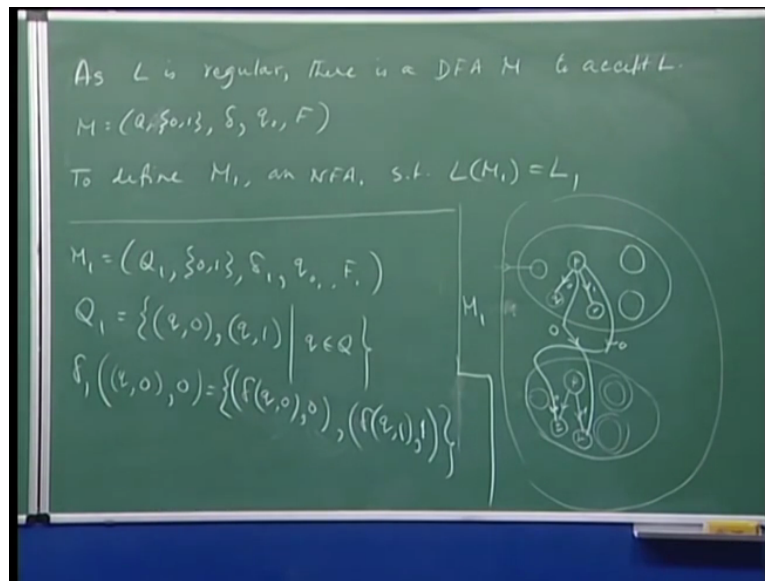 As L is regular, there is a DFA M to accept L.
M = (Q, {0,1}, δ, q₀, F)
To define M₁, an NFA, s.t. L(M₁) = L₁
M₁ = (Q₁, {0,1}, δ₁, q₀, F₁)
Q₁ = {(q,0), (q,1) | q ∈ Q}
δ₁((q,0),0) = {(δ(q,0),0), (δ(q,1),1)}
M₁
P
0
0
P